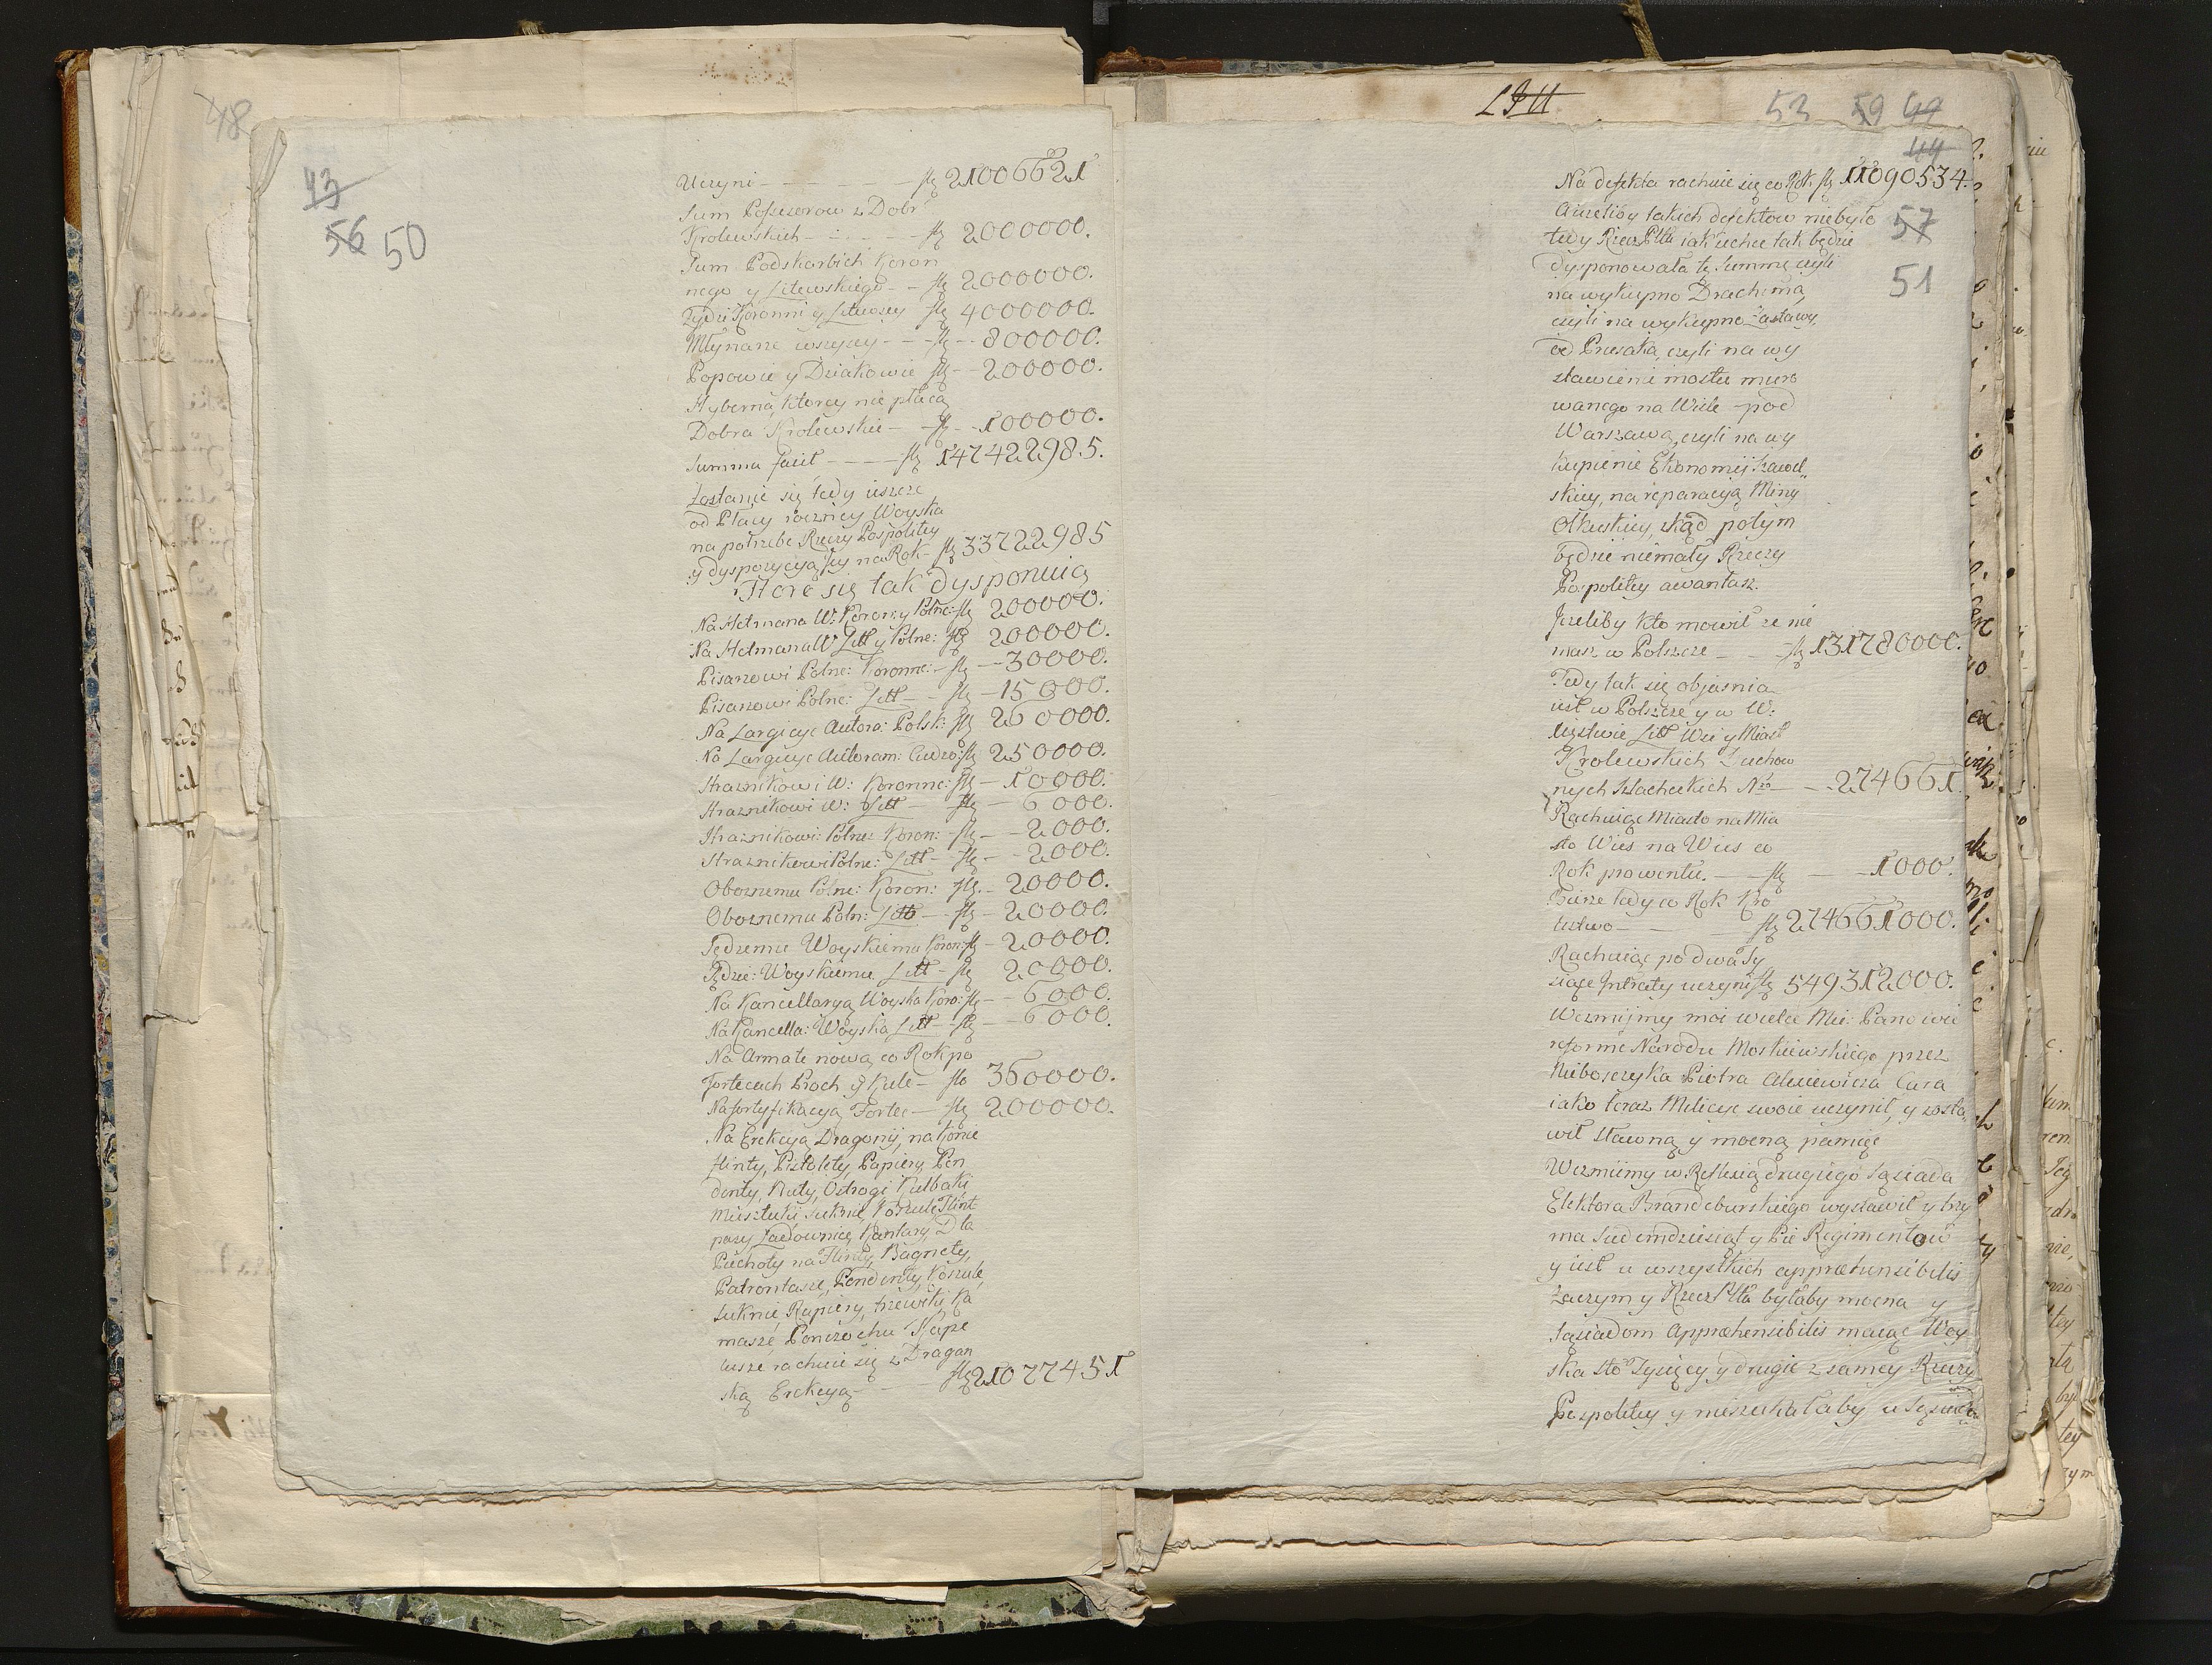 48
43
56 50
Uczyni - - - - - - fl 21006621
Sum Possessorow z Dobr
Krolewskich - - - - - fl 2000000.
Sum Podskarbich Koron
nego y Litewskiego - - fl 2000000.
Żydzi Koronni y Litewscy fl 4000000.
Młynarze wszyscy - - fl - - 800000.
Popowie y Dziakowie fl - - 200000.
Hyberną, ktorey nie płacą
Dobra Krolewskie - - fl - - 100000.
Summa facit - - - - fl 147422985.
Zostanie się tedy ieszcze
od Płacy roczniey Woyska
na potrzebę Rzeczy Pospolitey
y dyspozycyą Jey na Rok - fl 33722985
Które się tak dysponuią
Na Hetmana W: Koron: y Polne: fl 200000.
Na Hetmana W Litt y Polne: fl 200000.
Pisarzowi Polne: Koronne: - fl - - 30000.
Pisarzowi Polne: Litt - fl - 15000.
Na Largicye Autora: Polsk: fl 260000.
Na Largicye Autoram: Cudzo: fl 250000.
Strażnikowi W: Koronne: fl - 10000.
Strażnikowi W: Litt - fl - 6000.
Strażnikowi: Polne: Koron: - fl - - 2000.
Strażnikowi Polne: Litt - fl - - 2000.
Oboznemu Polne: Koron: fl. - 20000.
Oboznemu Poln: Litt - fl - 20000.
Sędziemu Woyskiemu Koron: fl - 20000.
Sędzie: Woyskiemu Litt - fl 20000.
Na Kancellaryą Woyska Koro: fl - - 6000.
Na Kancella: Woyska Litt - fl - - 6000.
Na Armatę nową co Rok po
Fortecach Proch y Kule - fl 360000.
Na fortyfikacyą Fortec - fl 200000.
Na Erekcyą Dragonij, na konie
flinty, Pistolety, Rapiery, Pen
denty, Buty, Ostrogi Kulbaki
Musztuki Suknie, Koszule Flint
pasy Ładownice, Kantary, Dla
Piechoty na Flinty, Bagnety,
Patrontasze, Pendenty, Koszule,
Suknie, Rapiery, trzewiki, Ka
masze, Ponczochu Kape
lusze rachuie się z Dragan
ską Erekcyą - - fl 21077451
53 59 49
44
57
51
Na defekta rachuie się co Rok fl 11090534.
A ieżeliby takich defektow niebyło
tedy Rzecz Plta iak zechce tak będzie
dysponowała tę Summę, czyli
na wykupno Drachima,
czyli na wykupno Zastawy,
od Prusaka, czyli na wy
stawienie mostu muro
wanego na Wiśle pod
Warszawą, czyli na wy
kupienie Ekonomij Szawel„
skiey, na reparacyą Miny
Olkuskiey, skąd potym
będzie niemały Rzeczy
Pospolitey awantaż.
Jeżeliby kto mowił że nie
masz w Polszcze - - fl 131780000.
Tedy tak się objaśnia
iest w Polszcze y w W:
Xięstwie Litt Wsi y Miast
Krolewskich Duchow
nych Szlacheckich Nro - - 274661.
Rachuiąc Miasto na Mia
sto Wieś na Wieś co
Rok prowentu. - - fl - - 1000.
Bierze tedy co Rok Kro
lestwo - - - - fl 274661000.
Rachuiąc po dwa Ty
siące Intraty uczyni fl 549312000.
Weźmijmy moi wielce Mci: Panowie
reformę Narodu Moskiewskiego przez
Nieboszczyka Piotra Alexiewicza Cara
iako teraz Milicye swoie uczynił, y zosta
wił sławną y mocną pamięć
Weźmiimy w Reflexią drugiego Sąsiada
Elektora Brandeburskiego wystawił y trzy
ma Siedemdziesiąt y Pię Regimentow
y iest u wszystkich apprehensibilis
Zaczym y Rzecz Plta byłaby mocna y
Sąsiadom Apprehensibilis maiąc Woy
ska Sto Tysięcy y drugie z samey Rzeczy
Pospolitey y nieszukałaby u Sąsiada